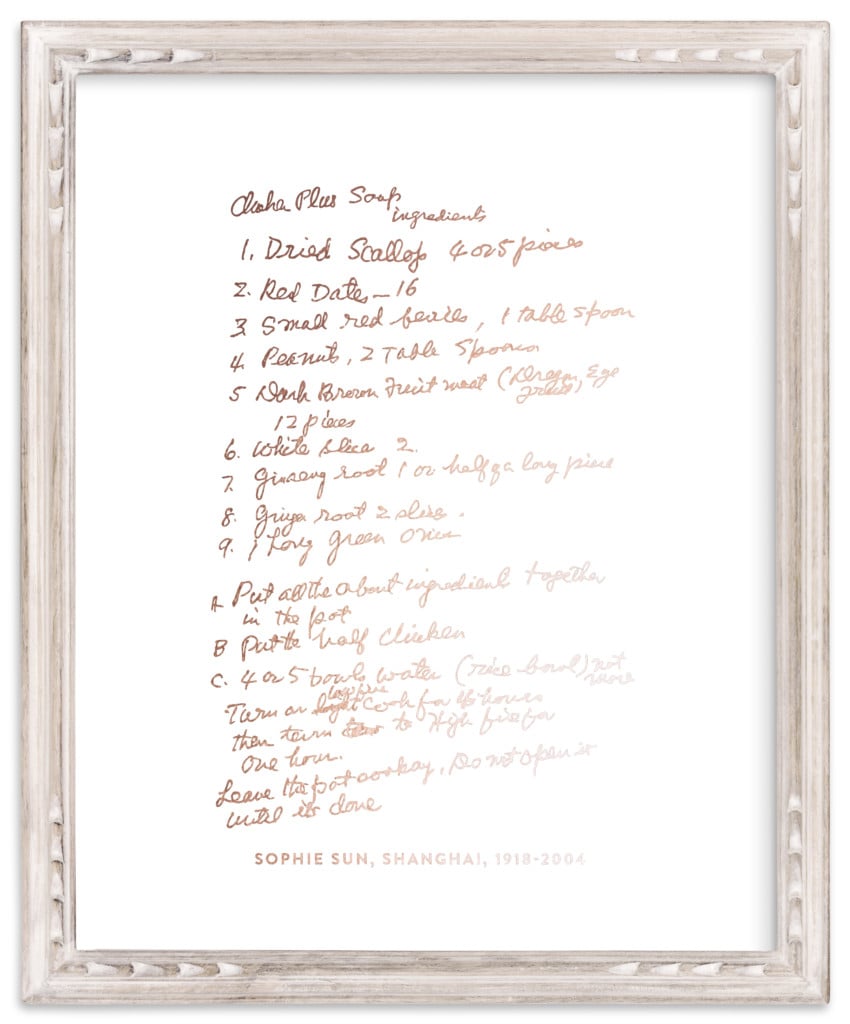 Plus Soup
ingredients
1. Dried Scallop 4 or 5 pieces
2. Red Dates — 16
3. Small red berries, 1 table spoon
4. Peanuts, 2 Table Spoons
5 Dark Brown Fruit meat (Dragon, Eye
fruit)
12 pieces
6. White slice 2.
7. Ginseng root 1 or half of a long piece
8. Ginger root 2 slices.
9. 1 Long green onion
A Put all the about ingredient together
in the pot
B Put the half Chicken
C. 4 or 5 bowls water (rice bowl) not
more
Turn on low fire cook for hours
then turn to High fire for
one hour.
Leave the pot, Do not open it
until it's done
SOPHIE SUN, SHANGHAI, 1918-2004